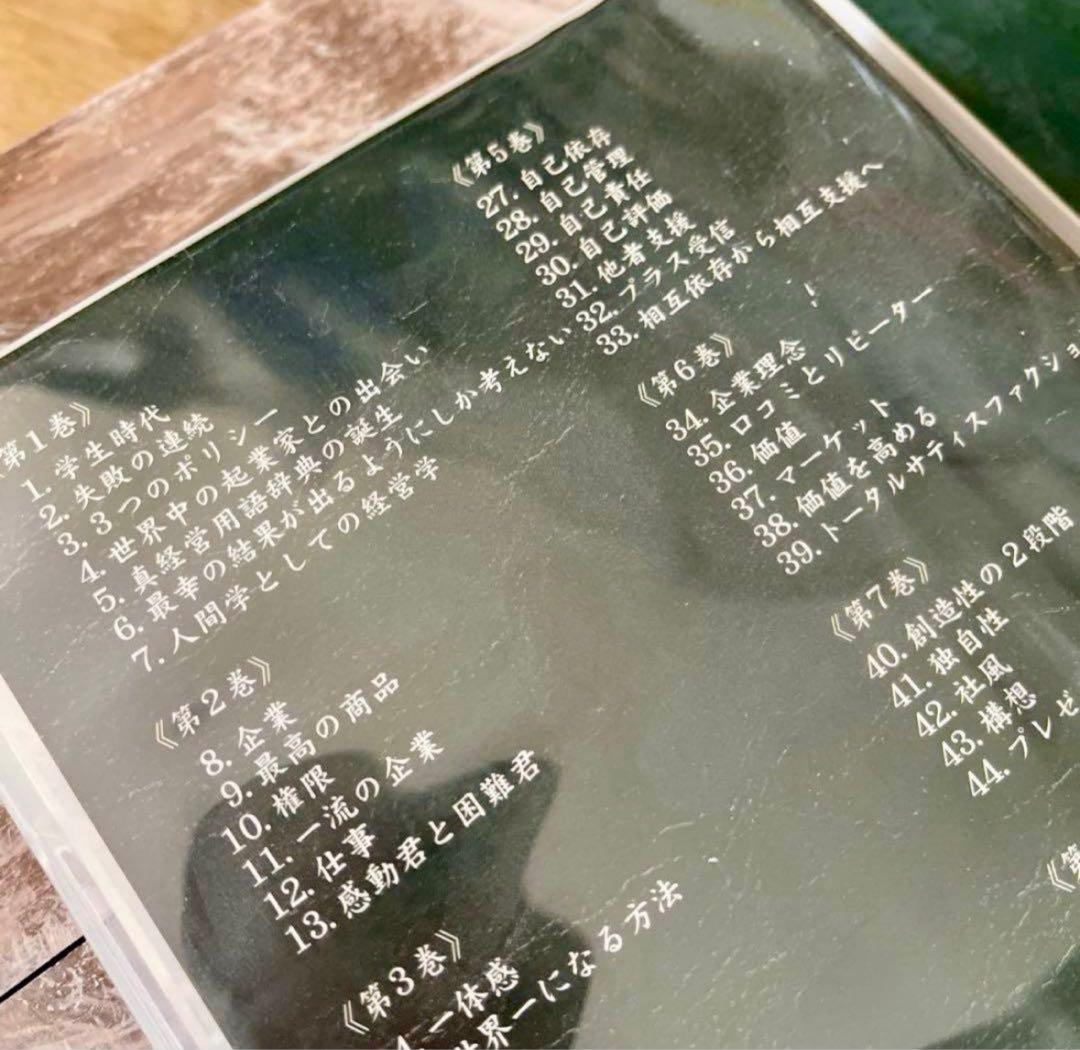 第1巻》
1. 学生時代
2. 失敗の連続
3. 3つのポリシー
4. 世界中の起業家との出会い
5. 真経営用語辞典の誕生
6. 最幸の結果が出るようにしか考えない
7. 人間学としての経営学
《第2巻》
8. 企業
9. 最高の商品
10. 権限
11. 一流の企業
12. 仕事
13. 感動君と困難君
《第3巻》
4. 一体感
世界一になる方法
《第5巻》
27. 自己依存
28. 自己管理
29. 自己責任
30. 自己評価
31. 他者支援
32. プラス受信
33. 相互依存から相互支援へ
《第6巻》
34. 企業理念
35. 口コミとリピーター
36. 価値
37. マーケット
38. 価値を高める
39. トータルサティスファクショ
《第7巻》
40. 創造性の2段階
41. 独自性
42. 社風
43. 構想
44. プレゼ
《第